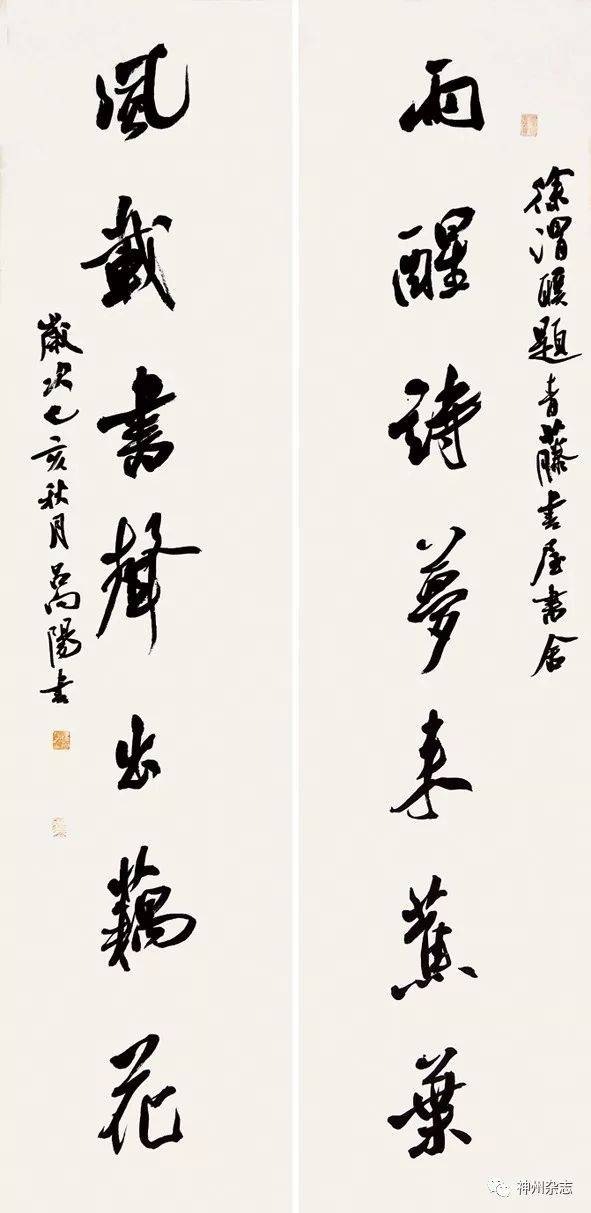 徐渭聯題青藤書屋書舍
雨醒詩夢來蕉葉
風載書聲出藕花
歲次己亥秋月陽書
神州杂志